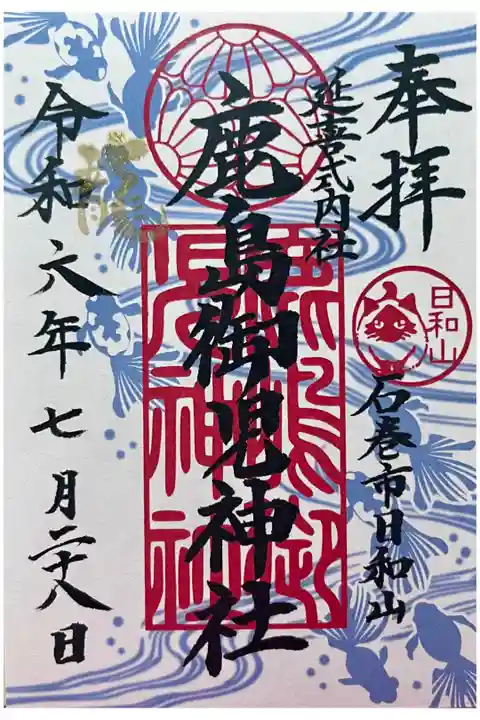 奉拝
日和山
石巻市日和山
延喜式内社
鹿島御児神社
令和六年七月二十八日